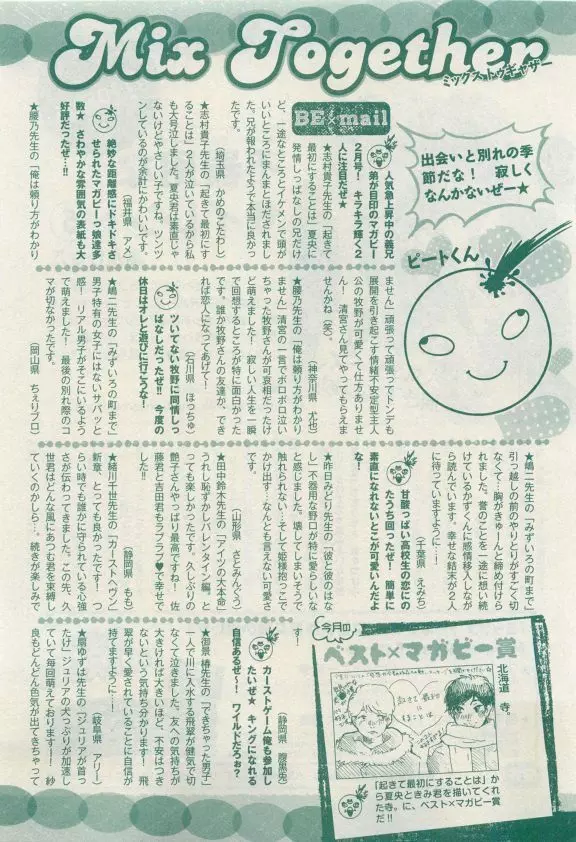 Mix Together
ミックストゥギャザー
出会いと別れの季
節だな！　寂しく
なんかないぜー★
ピートくん
BE×mail
人気急上昇中の義兄
弟が目印のマガビー
2月号！　キラキラ輝く2
人に注目だぜ★
★志村貴子先生の「起きて
最初にすることは」夏央に
発情しっぱなしの兄だけ
ど、一途なところとイケメンで頭が
いいところにまんまとほだされまし
た。兄が報われたようで本当に良かっ
たです。
（埼玉県　かめのこだわし）
★志村貴子先生の「起きて最初にす
ることは」2人が泣いているから私
も大号泣しました。夏央君は素直じゃ
ないけどやさしい子ですね。ツンツ
ンしているのが余計にかわいいです。
（福井県　アメ）
絶妙な距離感にドキドキさ
せられたマガビーっ娘達多
数★　さわやかな雰囲気の表紙も大
好評だったぜ…!!
★腰乃先生の「俺は頼り方がわかり
ません」頑張って頑張ってトンデモ
展開を引き起こす情緒不安定型主人
公の牧野が可愛くて仕方ありませ
ん！　清宮さん見てやってもらえま
せんかね（笑）。
（神奈川県　尤也）
★腰乃先生の「俺は頼り方がわかり
ません」清宮の一言でボロボロ泣い
ちゃった牧野さんが可哀相だったけ
ど萌えました！　寂しい人生を一瞬
で回想するところが特に面白かった
です。誰か牧野さんの友達か、でき
れば恋人になってあげて！
（石川県　ほっちゅ）
ツいてない牧野に同情しっ
ぱなしだったぜ!!　今度の
休日はオレと遊びに行こうな！
★嶋二先生の「みずいろの町まで」
男子特有の女子にはないサバッと
感！　リアル男子がそこにいるよう
で萌えました！　最後の別れ際のコ
マが切なかったです。
（岡山県　ちぇりブロ）
★嶋二先生の「みずいろの町まで」
引っ越しの前のやりとりがすごく切
なくて…胸がきゅーんと締め付けら
れました。誉のことを一途に想い続
けているかずくんに感情移入しなが
ら読んでいます。幸せな結末が2人
に待っていますように…！
（千葉県　えみち）
甘酸っぱい高校生の恋にの
たうち回ったぜ！　簡単に
素直になれないとこが可愛いんだよ
な！
★昨日みどり先生の「彼と彼のはな
し」不器用な野口が特に愛らしいな
と感じました。壊してしまいそうで
触れられない…そして姫様抱っこで
かけ出す…なんとも言えない可愛さ
です。
（山形県　さとみんくう）
★田中鈴木先生の「アイツの大本命」
うれし恥ずかしバレンタイン編、と
っても楽しかったです。久しぶりの
艶子さんやっぱり最高ですね！　佐
藤君と吉田君もラブラブ♥で幸せで
した!!
（静岡県　もも）
★緒川千世先生の「カーストヘヴン」
新章　とっても良かったです！　つ
らい時でも誰かに守られている心強
さが伝わってきました。この先、久
世はどんな風にあつむ君を束縛し
ていくのかしら…。続きが楽しみで
す！
（静岡県　腹黒先）
カーストゲーム俺も参加し
たいぜ★　キングになれる
自信あるぜ〜！　ワイルドだろぉ？
★御景椿先生の「できちゃった男子」
一人で川に入水する飛翠が健気で切
なくて泣きました。友への気持ちが
大きければ大きいほど、不安はつき
ないという気持ち分かります！　飛
翠が早く愛されていることに自信が
持てますように…！
（岐阜県　アリー）
★扇ゆずは先生の「ジュリアが首っ
たけ」ジュリアの犬っぷりが加速し
ていて毎回萌えております！　紗
良もどんどん色気が出てきちゃって
今月の
ベスト×マガビー賞
北海道　寺。
起きて最初に
することは
「起きて最初にすることは」か
ら夏央ときみ君を描いてくれ
た寺。に、ベスト×マガビー賞
だ!!